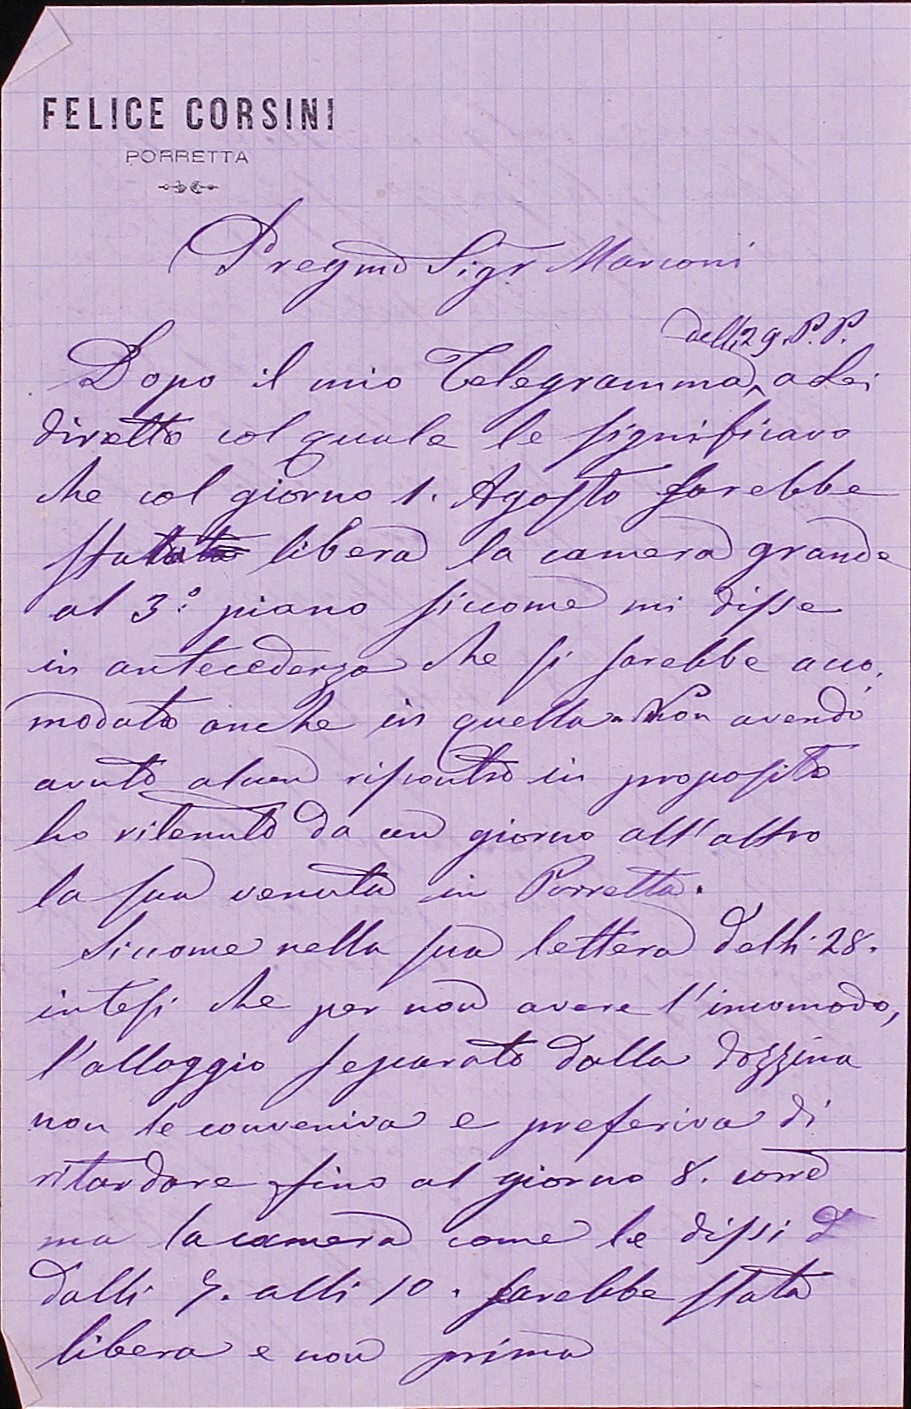 FELICE CORSINI
PORRETTA
Pregmo Sigr Marconi
delli 29. P.P.
Dopo il mio Telegramma a Lei
diretto col quale le significavo
che col giorno 1. Agosto sarebbe
stata libera la camera grande
al 3º piano siccome mi disse
in antecedenza che si sarebbe acco
modato anche in quella. Non avendo
avuto alcun riscontro in proposito
ho ritenuto da un giorno all'altro
la sua venuta in Porretta.
Siccome nella sua lettera delli 28.
intesi che per non avere l'incomodo,
l'alloggio separato dalla dozzina
non le conveniva e preferiva di
ritardare fino al giorno 8. corre
ma la camera come le dissi
dalli 7. alli 10. sarebbe stata
libera e non prima